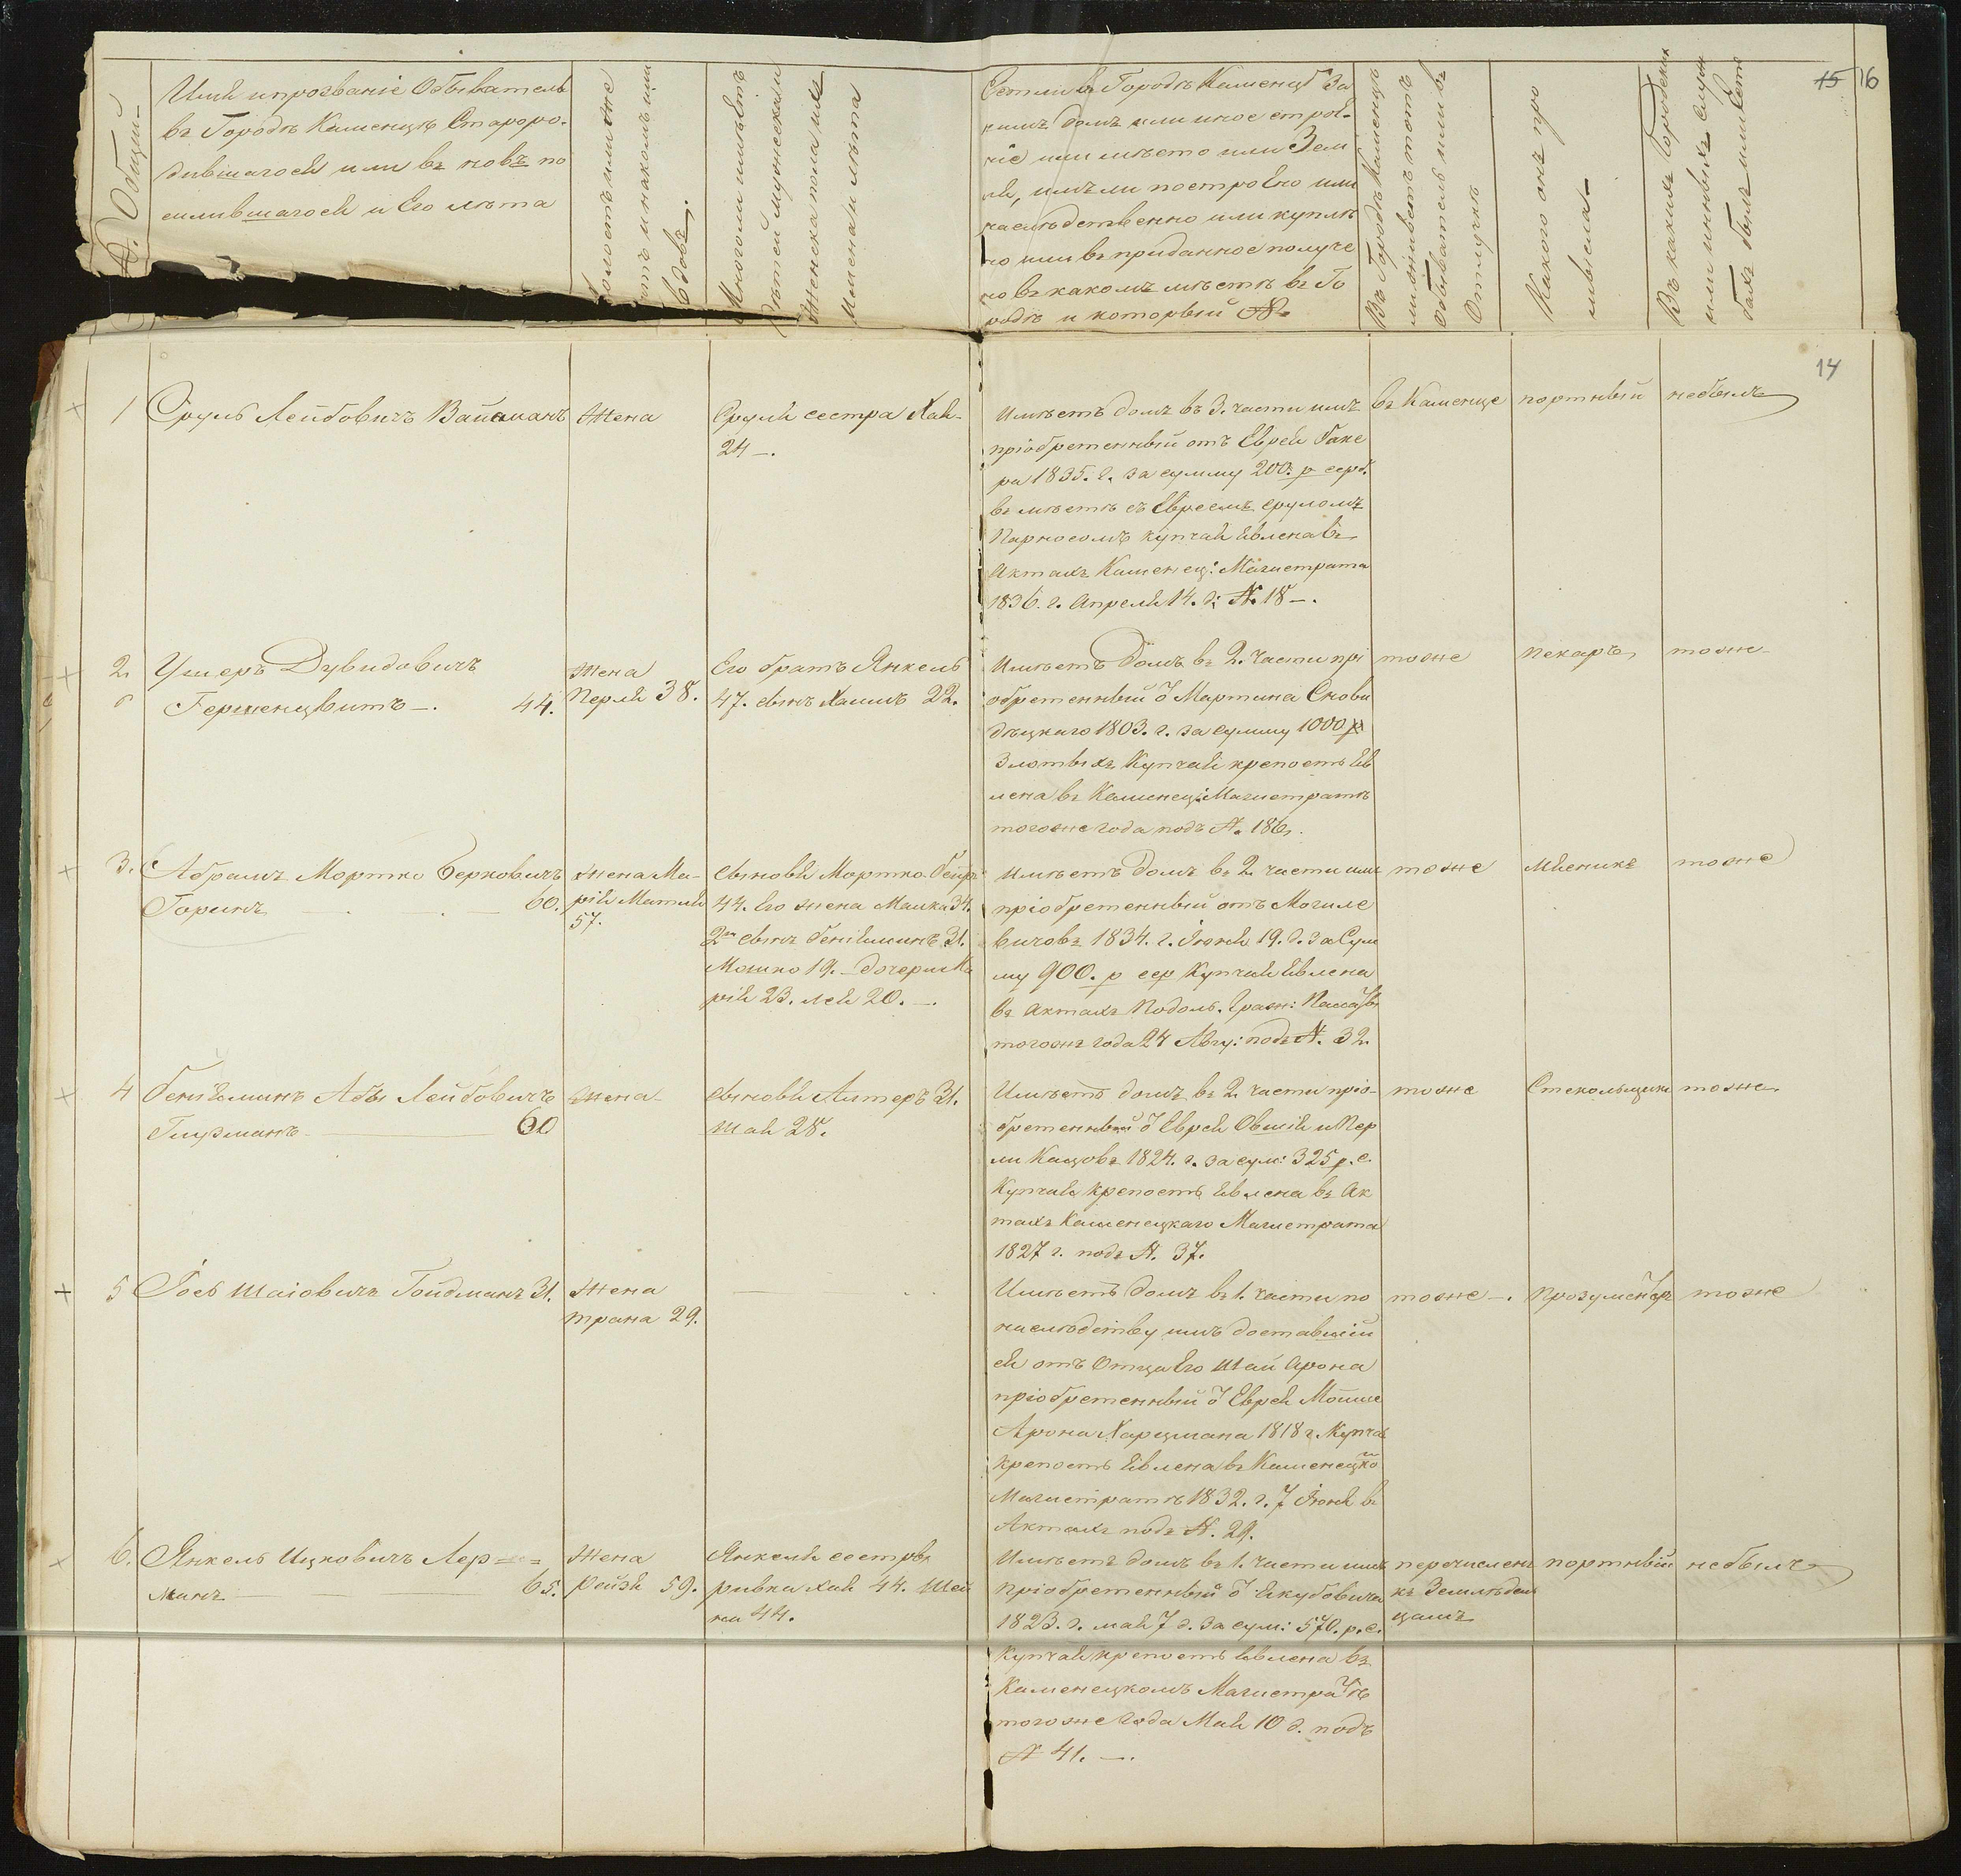 15 16
№ Общій
Имя и прозваніе Обывателя
въ Городѣ Каменцѣ Староро-
дившагося или въ новѣ по
селившагося и Его лѣта
Холостъ или же
натъ и на комъ или
Вдовъ.
Многоли имѣетъ
Дѣтей мужеска и
Женска пола ихъ
Имена и лѣта
Естли въ Городѣ Каменцѣ За
нимъ домъ или иное строе-
ніе или мѣсто или Зем
ля, имъ ли построено или
наслѣдственно или куплѣ
но или въ приданное получе
но въ какомъ мѣстѣ въ Го
родѣ и который №
Въ Городѣ Каменцѣ
ли живетъ тотъ
Обыватель или въ
Отлучкѣ
Какого онъ про
мысла
Въ какихъ Городскихъ
или инныхъ служ
бахъ былъ или Есть
14
1 Сруль Лейбовичъ Вайсманъ
Жена
Сруля сестра Хая
24 —.
Имѣетъ домъ въ 3. части имъ
пріобретенный отъ Еврея Баке
ра 1835. г. за сумму 200. р сереб.
въ мѣстѣ съ Евреемъ Сруломъ
Парносомъ купчая явлена въ
Актахъ Каменец: Магистрата
1836. г. Апреля 14. д: №. 18 —.
въ Каменце
портный
небылъ
2. Ушеръ Дувидовичъ
Гершенцвитъ —. 44.
Жена
Перля 38.
Его братъ Янкель
47. сынъ Хаимъ 22.
Имѣетъ Домъ въ 2. части прі
обретенный о͞т Мартина Снови
дѣцкаго 1803. г. за сумму 1000 р
Злотыхъ Купчая крепость яв
лена въ Каменец: Магистратѣ
тогоже года подъ №. 186.
тоже
пекаръ
тоже
3. Абрамъ Мортко Берковичъ
Горинъ — . — . — 60.
Жена Ма-
рія Матля
57.
сыновья Мортко Беиръ
44. Его жена Малка 34.
2й сынъ Беніяминъ 31.
Мошко 19. — дочери Ма
рія 23. Лея 20. —.
Имѣетъ домъ въ 2. части имъ
пріобретенный отъ Могиле
вичовъ 1834. г. Іюня 19. д. за Сум
му 900. р сер Купчая явлена
въ Актахъ Подоль. Граж: Палаты
тогожъ года 27 Авгу: подъ №. 32.
тоже
Мясникъ
тоже
4 Беніяминъ Абы Лейбовичъ
Глузманъ — 60
Жена
сыновья Алтеръ 31.
Шая 28.
Имѣетъ домъ въ 2. части пріо-
бретенный о͞т Еврея Овшія и Пер
ли Кацовъ 1824. г. за сум: 325 р. с.
Купчая крепость явлена въ Ак
тахъ Каменецкаго Магистрата
1827 г. подъ №. 37.
тоже
Стекольщикъ
тоже
5 Іось Шаіовичъ Гойдманъ 31.
Жена
Трана 29.
Имѣетъ домъ въ 1. части по
наслѣдству имъ доставшій
ся отъ Отца Его Шаи Арона
пріобретенный о͞т Еврея Мошше
Арона Харцмана 1818 г. Купчая
крепость явлена въ Каменецкомъ
Магистратѣ 1832. г. 7 Іюня въ
Актахъ подъ №. 29.
тоже —.
Прозументеръ
тоже
6. Янкель Ицковичъ Лер=
манъ — 65.
Жена
Рейзя 59.
Янкеля сестры
Ривка Хая 44. Шей
на 44.
Имѣетъ домъ въ 1. части имъ
пріобретенный о͞т Якубовича
1823. г. мая 7 д. за сум: 570. р. с.
Купчая крепость явлена въ
Каменецкомъ Магистратѣ
тогоже года Мая 10 д. подъ
№ 41. —.
перечисленъ
къ Земледѣль
цамъ
портный
небылъ